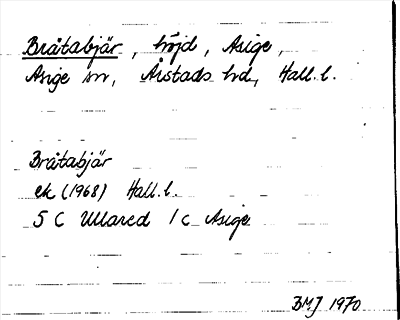 Bråtabjär, höjd, Asige,
Asige sn, Årstads hd, Hall. l.
Bråtabjär
ek (1968) Hall. l.
5 C Ullared 1 c Asige
BMJ 1970